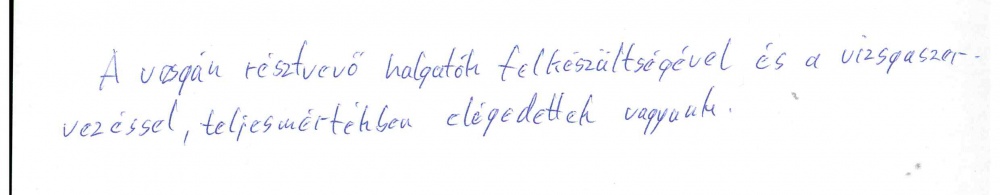 A vizsgán résztvevő halgatók felkészültségével és a vizsgaszer-
vezéssel, teljesmértékben elégedettek vagyunk.